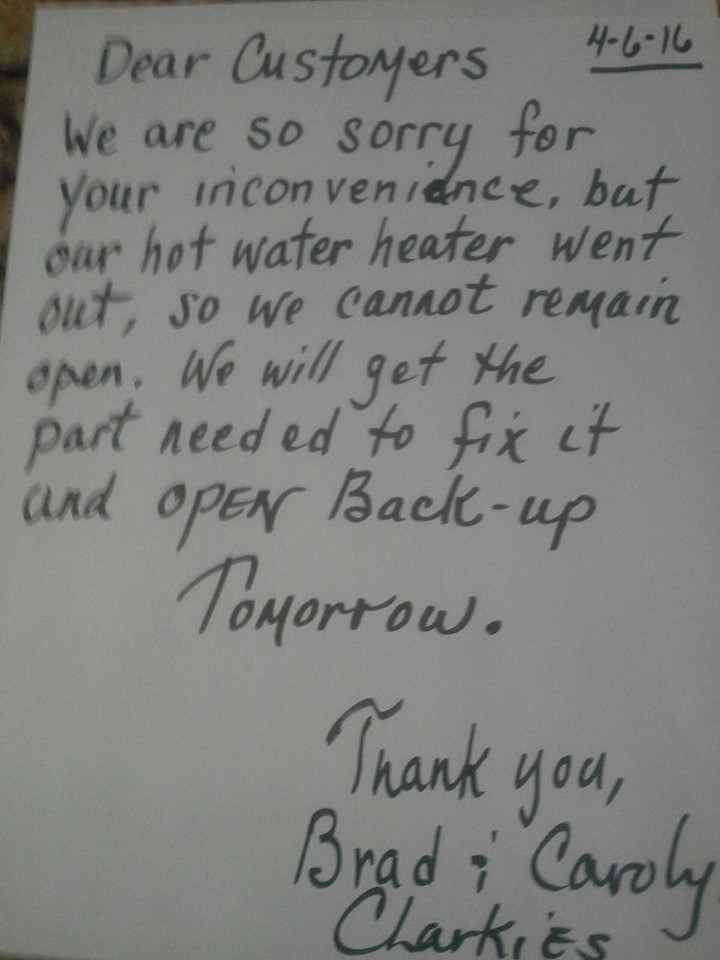 Dear Customers 4-6-16
We are so sorry for
your inconvenience, but
our hot water heater went
out, so we cannot remain
open. We will get the
part needed to fix it
and OPEN Back-up
Tomorrow.
Thank you,
Brad & Caroly
Charkies